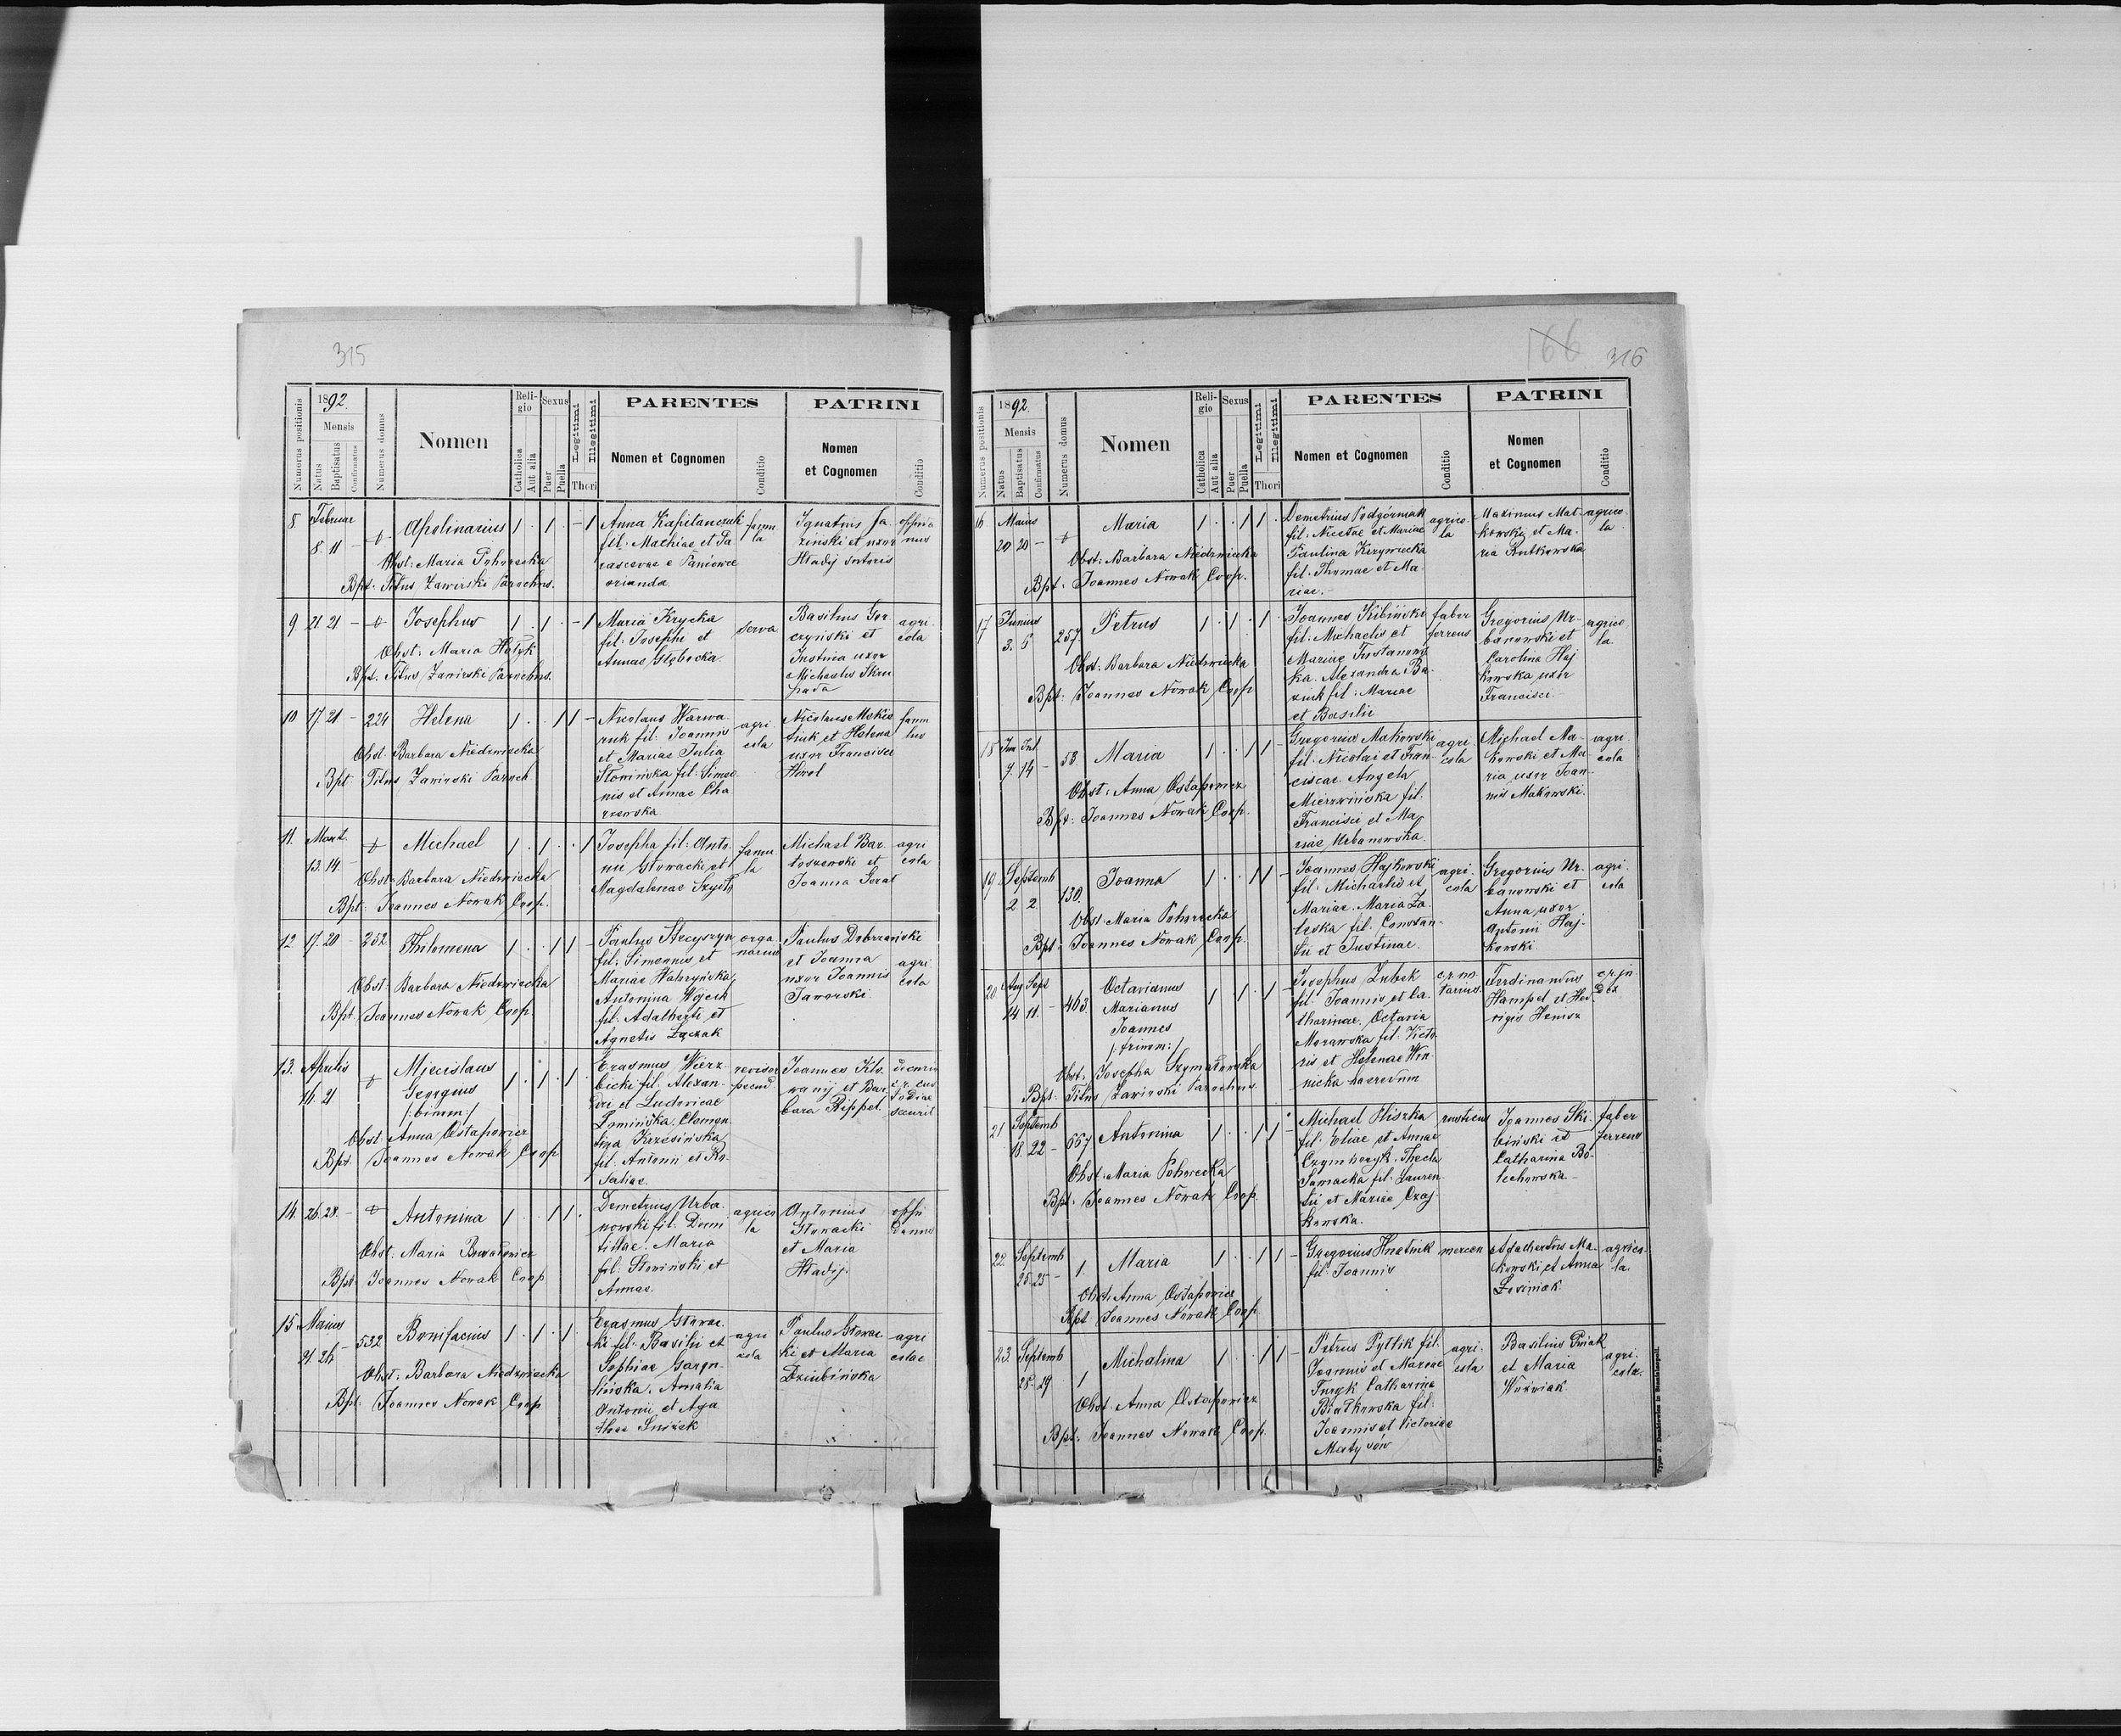 315
1892.
Numerus positionis
Mensis
Natus
Baptisatus
Confirmatus
Numerus domus
Nomen
Religio
Catholica
Aut alia
Sexus
Puer
Puella
Legitimi
Illegitimi
Thori
PARENTES
Nomen et Cognomen
Conditio
PATRINI
Nomen
et Cognomen
Conditio
8 Februar
8. 11 -
Apolinarius 1 . 1 . - 1
Obst: Maria Pohorecka
Bpt. Titus Zawirski Parochus.
Anna Kapitanczuk
fil: Mathiae et Pa
rascevae e Paniowce
orianda.
famu
la
Ignatius Ja
zinski et uxor
Hladij sutoris
9. 21 21 - Josephus 1 . 1 . - 1
Obst: Maria Hołyk
Bpt. Titus Zawirski Parochus.
Maria Krycka
fil: Josephi et
Annae Głębocka.
serva
Basilius Gor
czyński et
Justina uxor
Michaelis Skru
pada
agri
cola
10 17. 21 - 224 Helena 1 . . 1 1 -
Obst: Barbara Niedzwiecka
Bpt: Titus Zawirski Paroch
Nicolaus Warwa
ruk fil: Joannis
et Mariae Julia
Słowińska fil: Simeo
nis et Annae Cha
rzewska
agri
cola
uxor Francisci
11. Mart.
13. 14 -
Michael 1 . 1 . . 1
Obst: Barbara Niedzwiecka
Bpt: Joannes Nowak Coop.
Josepha fil: Anto
nii Głowacki et
Magdalenae
famu
la
Michael Bar
toszewski et
Joanna
agri
cola
12 17. 20 - 352 Philomena 1 . . 1 1 -
Obst: Barbara Niedzwiecka
Bpt. Joannes Nowak Coop.
Paulus Stecyszyn
fil: Simeonis et
Mariae
Antonina Wójcik
fil: Adalberti et
Agnetis Łączak
orga
narius
Paulus Dobrzański
et Joanna
uxor Joannis
Jaworski
agri
cola
13. Aprilis
16. 21
Miecislaus
Georgius
/:binom:/
1 . 1 . 1 .
Obst: Anna Ostapowicz
Bpt: Joannes Nowak Coop
Erasmus Wierz
bicki fil: Alexan
dri et Ludovicae
Łomińska. Clemen
tina Krzesińska
fil: Antonii et Ro
saliae.
revisor
pecud
bara Rippel
14. 26. 28. - Antonina 1 . . 1 1 .
Obst: Maria
Bpt: Joannes Nowak Coop
Demetrius Urba
nowski fil: Domi
tillae. Maria
fil: Słowiński et
Annae.
agrico
la
Antonius
Głowacki
et Maria
Hladij.
oppi
danus
15. Maius
21. 26 - 532 Bonifacius 1 . 1 . 1 .
Obst: Barbara Niedzwiecka
Bpt: Joannes Nowak Coop
Erasmus Głowac
ki fil: Basilii et
Sophiae
Amalia
Antonii et Aga
thae Śnieżek
agri
cola
Paulus Głowac
ki et Maria
Dziubińska
agri
colae
166 316
1892.
Numerus positionis
Mensis
Natus
Baptisatus
Confirmatus
Numerus domus
Nomen
Religio
Catholica
Aut alia
Sexus
Puer
Puella
Legitimi
Illegitimi
Thori
PARENTES
Nomen et Cognomen
Conditio
PATRINI
Nomen
et Cognomen
Conditio
16 Maius
20 20 -
Maria 1 . . 1 1 .
Obst: Barbara Niedzwiecka
Bpt: Joannes Nowak Coop.
Demetrius Podgórniak
fil: Nicetae et Mariae
Paulina Krzywiecka
fil: Thomae et Ma
riae. -
agrico
la
Maximus Mat
kowski et Ma
ria Rutkowska
agrico
la
17 Junius
3. 5 257 Petrus 1 . 1 . 1 .
Obst: Barbara Niedzwiecka
Bpt: Joannes Nowak Coop
fil: Michaelis et
Mariae Tustanows
ka. Alexandra
fil: Mariae
et Basilii
faber
ferreus
Gregorius Ur-
banowski et
Carolina Haj
kowska uxor
Francisci.
agrico
la.
18 Jun Jul
9. 14 - 53 Maria 1 . . 1 1 -
Obst: Anna Ostapowicz
Bpt: Joannes Nowak Coop.
Gregorius Makowski
fil: Nicolai et Fran-
ciscae. Angela
Mierzwińska fil.
Francisci et Ma
riae Urbanowska.
agri
cola
Michael Ma-
kowski et Ma
ria uxor Joan
nis Makowski.
agri
cola
19 Septemb
2 2. 130. Joanna 1 . . 1 1 -
Obst: Maria Pohorecka
Bpt: Joannes Nowak Coop.
Joannes Hajkowski
fil: Michaelis et
Mariae. Maria Za
leska fil. Constan-
tii et Justinae.
agri
cola
Gregorius Ur
banowski et
Anna uxor
Antonii Haj-
kowski.
agri
cola
20 Aug Sept
14 11. - 463. Octavianus
Marianus
Joannes
/:trinom:/
1 . 1 . 1 -
Obst: Josepha Szymańowska
Bpt: Titus Zawirski Parochus.
Josephus Zubek
fil. Joannis et Ca.
tharinae. Octavia
Morawska fil. Victo
ris et Helenae Win
nicka
c.r. no
tarius.
Ferdinandus
Hampel et Hed
vigis
c.r. ju
dex
21 Septemb
18. 22 - 667 Antonina 1 . . 1 1 .
Obst: Maria Pohorecka
Bpt: Joannes Nowak Coop.
Michael Hiszka
fil: Eliae et Annae
Thecla
Sawacka fil. Lauren
tii et Mariae Czaj
kowska.
rusticus
Joannes Ski
biński et
Catharina Bo-
lechowska
faber
ferreus
22. Septemb
25. 25 - 1. Maria 1 . . 1 1 -
Obst: Anna Ostapowicz
Bpt Joannes Nowak Coop
Gregorius Hnatiuk
fil: Joannis
mercen
Adalbertus Ma
kowski et Anna
agrico
la.
23 Septemb
28. 29 1 Michalina 1 . . 1 1 -
Obst: Anna Ostapowicz
Bpt: Joannes Nowak Coop.
Petrus Pytlik fil.
Joannis et Mariae
Catharina
Białkowska fil:
Joannis et Victoriae
Matysów
agri
cola
Basilius
et Maria
Woźniak.
agri
cola.